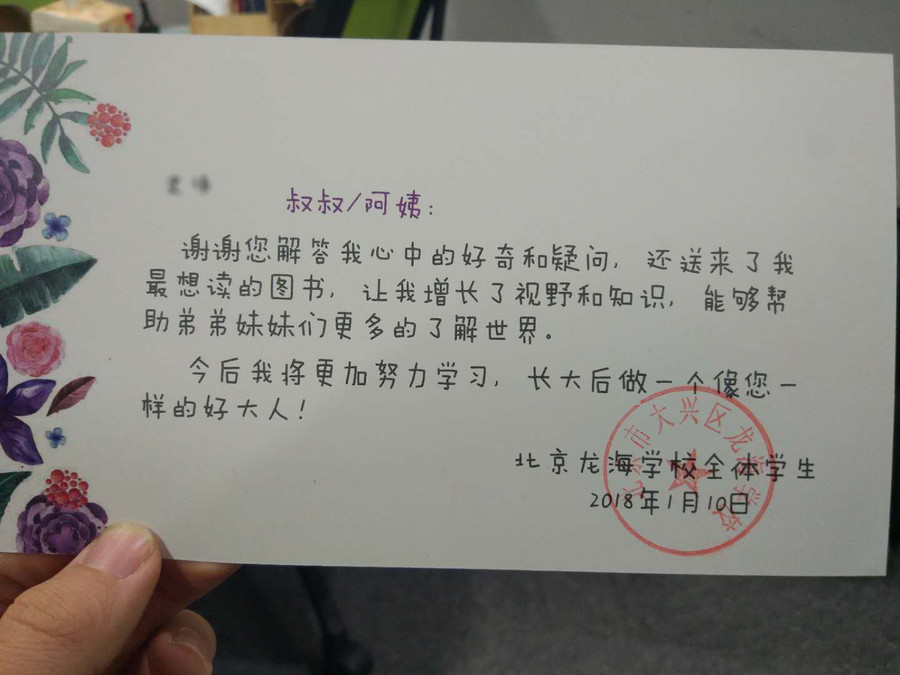 叔叔/阿姨:
谢谢您解答我心中的好奇和疑问,还送来了我
最想读的图书,让我增长了视野和知识,能够帮
助弟弟妹妹们更多的了解世界。
今后我将更加努力学习,长大后做一个像您一
样的好大人!
北京龙海学校全体学生
2018年1月10日
北京市大兴区龙海学校